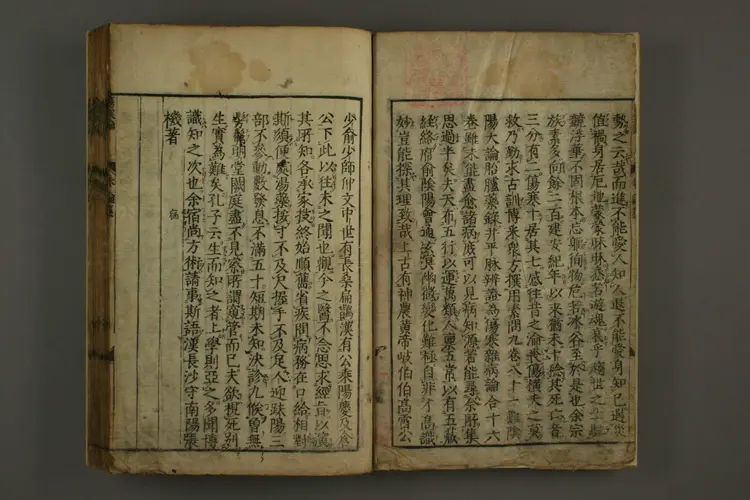 勢之云哉而進不能愛人知人退不能愛身知己遇災
值禍身居厄地蒙蒙昧昧惷若遊魂哀乎趨世之士馳
競浮華不固根本忘軀徇物危若冰谷至於是也余宗
族素多向餘二百建安紀年以來猶未十稔其死亡者
三分有二傷寒十居其七感往昔之淪喪傷橫夭之莫
救乃勤求古訓博采衆方撰用素問九卷八十一難陰
陽大論胎臚藥錄并平脉辨證爲傷寒雜病論合十六
卷雖未能盡愈諸病庶可以見病知源若能尋余所集
思過半矣夫天布五行以運萬類人稟五常以有五藏
經絡府俞陰陽會通玄冥幽微變化難極自非才高識
妙豈能探其理致哉上古有神農黃帝岐伯伯高雷公
少俞少師仲文中世有長桑扁鵲漢有公乘陽慶及倉
公下此以往未之聞也觀今之醫不念思求經旨以演
其所知各承家技終始順舊省疾問病務在口給相對
斯須便處湯藥按寸不及尺握手不及足人迎趺陽三
部不參動數發息不滿五十短期未知決診九候曾無
髣髴明堂闕庭盡不見察所謂窺管而已夫欲視死別
生實爲難矣孔子云生而知之者上學則亞之多聞博
識知之次也余宿尚方術請事斯語漢長沙守南陽張
機著